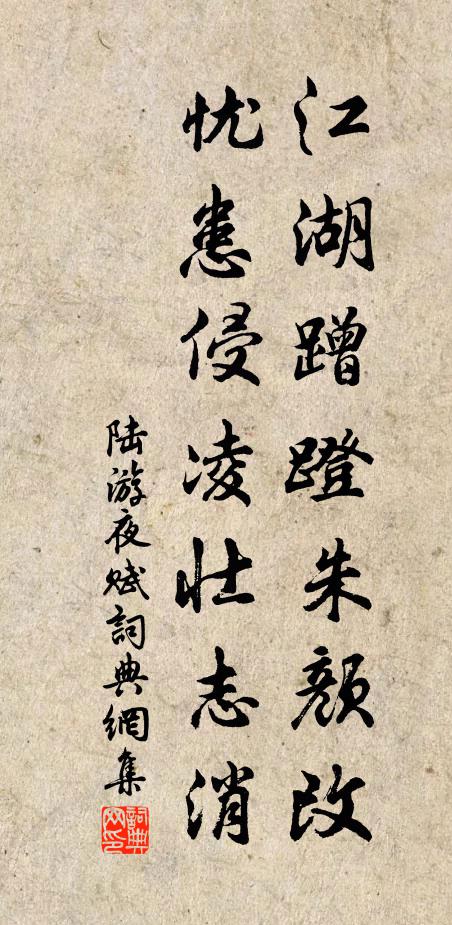 江湖蹭蹬朱颜改
忧患侵凌壮志消
陆游夜赋詞典網集
詞典网印